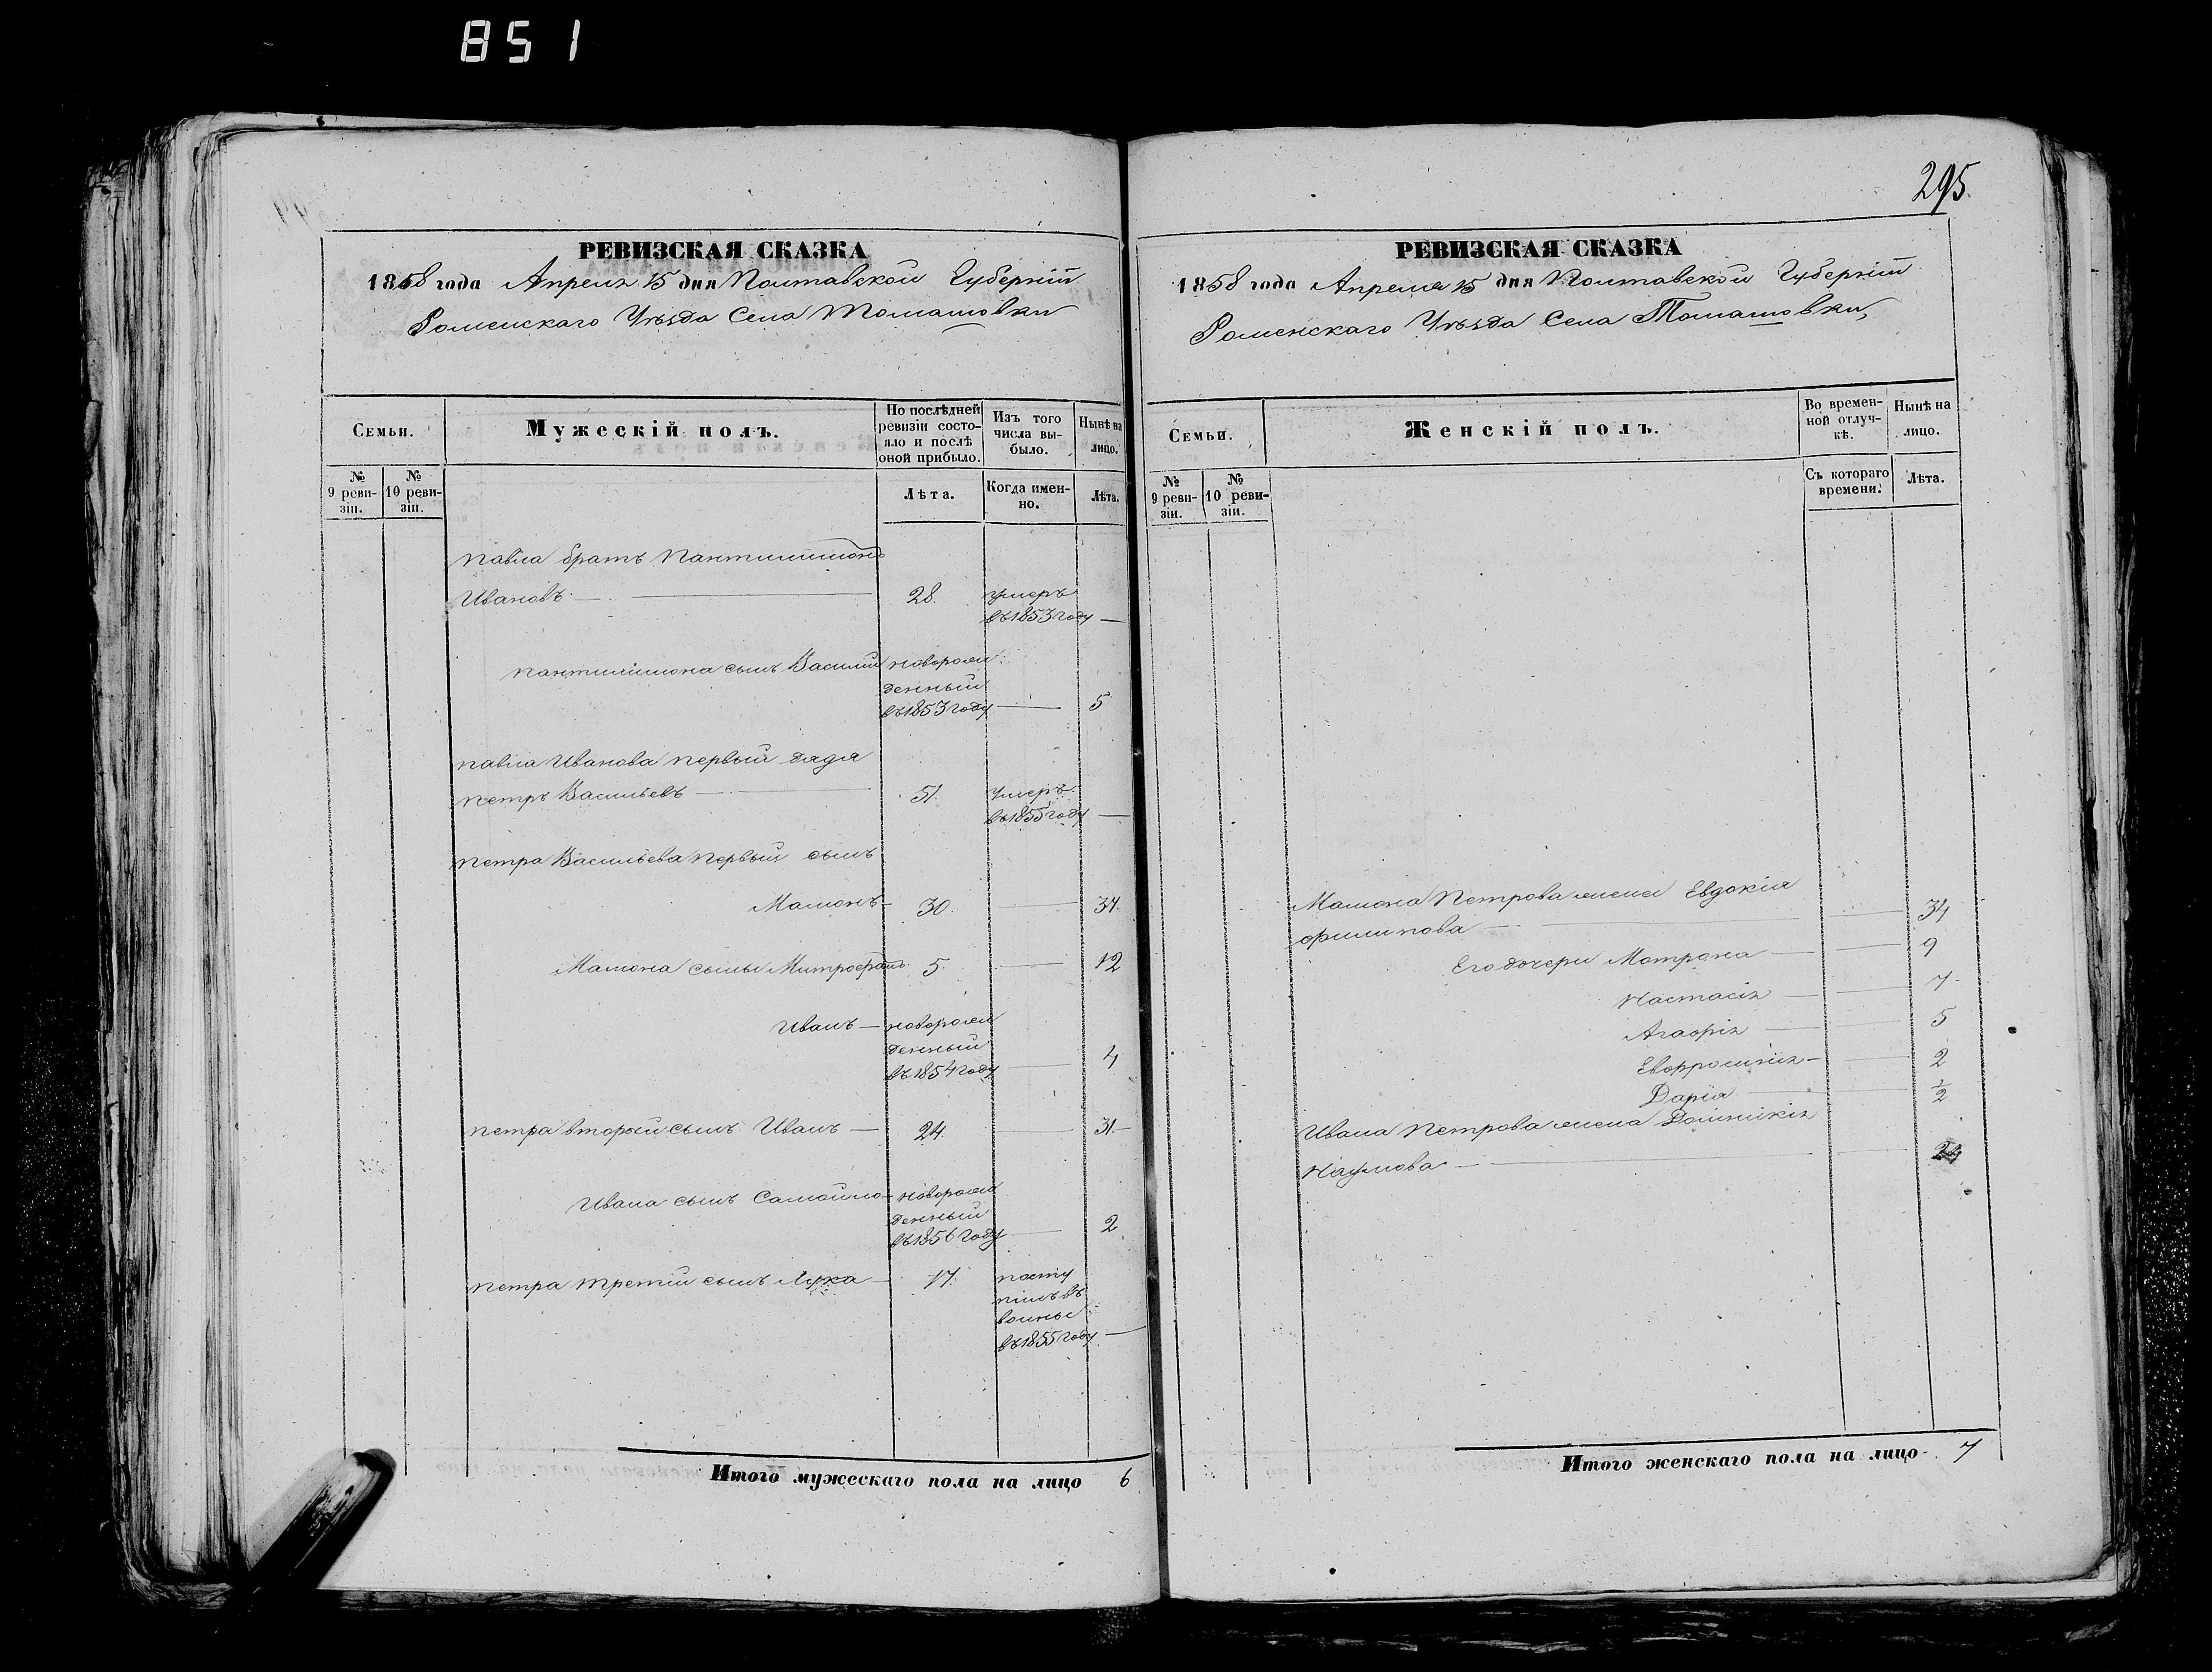 851
РЕВИЗСКАЯ СКАЗКА
1858 года Апреля 15 дня Полтавской Губерніи
Роменскаго Уѣзда Села Томашовки
Семьи.
Мужескій полъ.
По послѣдней ревизіи состояло и послѣ оной прибыло.
Изъ того числа выбыло.
Нынѣ на лицо.
№ 9 ревизіи.
№ 10 ревизіи.
Лѣта.
Когда именно.
Лѣта.
Павла братъ Пантилимонъ
Ивановъ — 28. умеръ
въ 1853 году —
Пантилимона сынъ Василий новорож
денный
въ 1853 году — 5
Павла Иванова первый дядя
Петръ Васильевъ — 51. умеръ
въ 1855 году —
Петра Васильева первый сынъ
Мамонъ — 30. — 37.
Мамона сыны Митрофанъ 5. — 12
Иванъ — новорож
денный
въ 1854 году — 4
Петра второй сынъ Иванъ — 24. — 31. —
Ивана сынъ Самойло — новорож
денный
въ 1856 году — 2
Петра третій сынъ Лука — 17. посту
пилъ въ
воины
въ 1855 году —
Итого мужескаго пола на лицо 6
295.
РЕВИЗСКАЯ СКАЗКА
1858 года Апреля 15 дня Полтавской Губерніи
Роменскаго Уѣзда Села Томашовки,
Семьи.
Женскій полъ.
Во временной отлучкѣ.
Нынѣ на лицо.
№ 9 ревизіи.
№ 10 ревизіи.
Съ котораго времени.
Лѣта.
Мамона Петрова жена Евдокія
Филипова — — 34
Его дочери Матрона — — 9
Настасія — — 7.
Агафія — — 5
Евфросинія — — 2
Дарія — 1/2
Ивана Петрова жена Домникія
Наумова — —
Итого женскаго пола на лицо 7